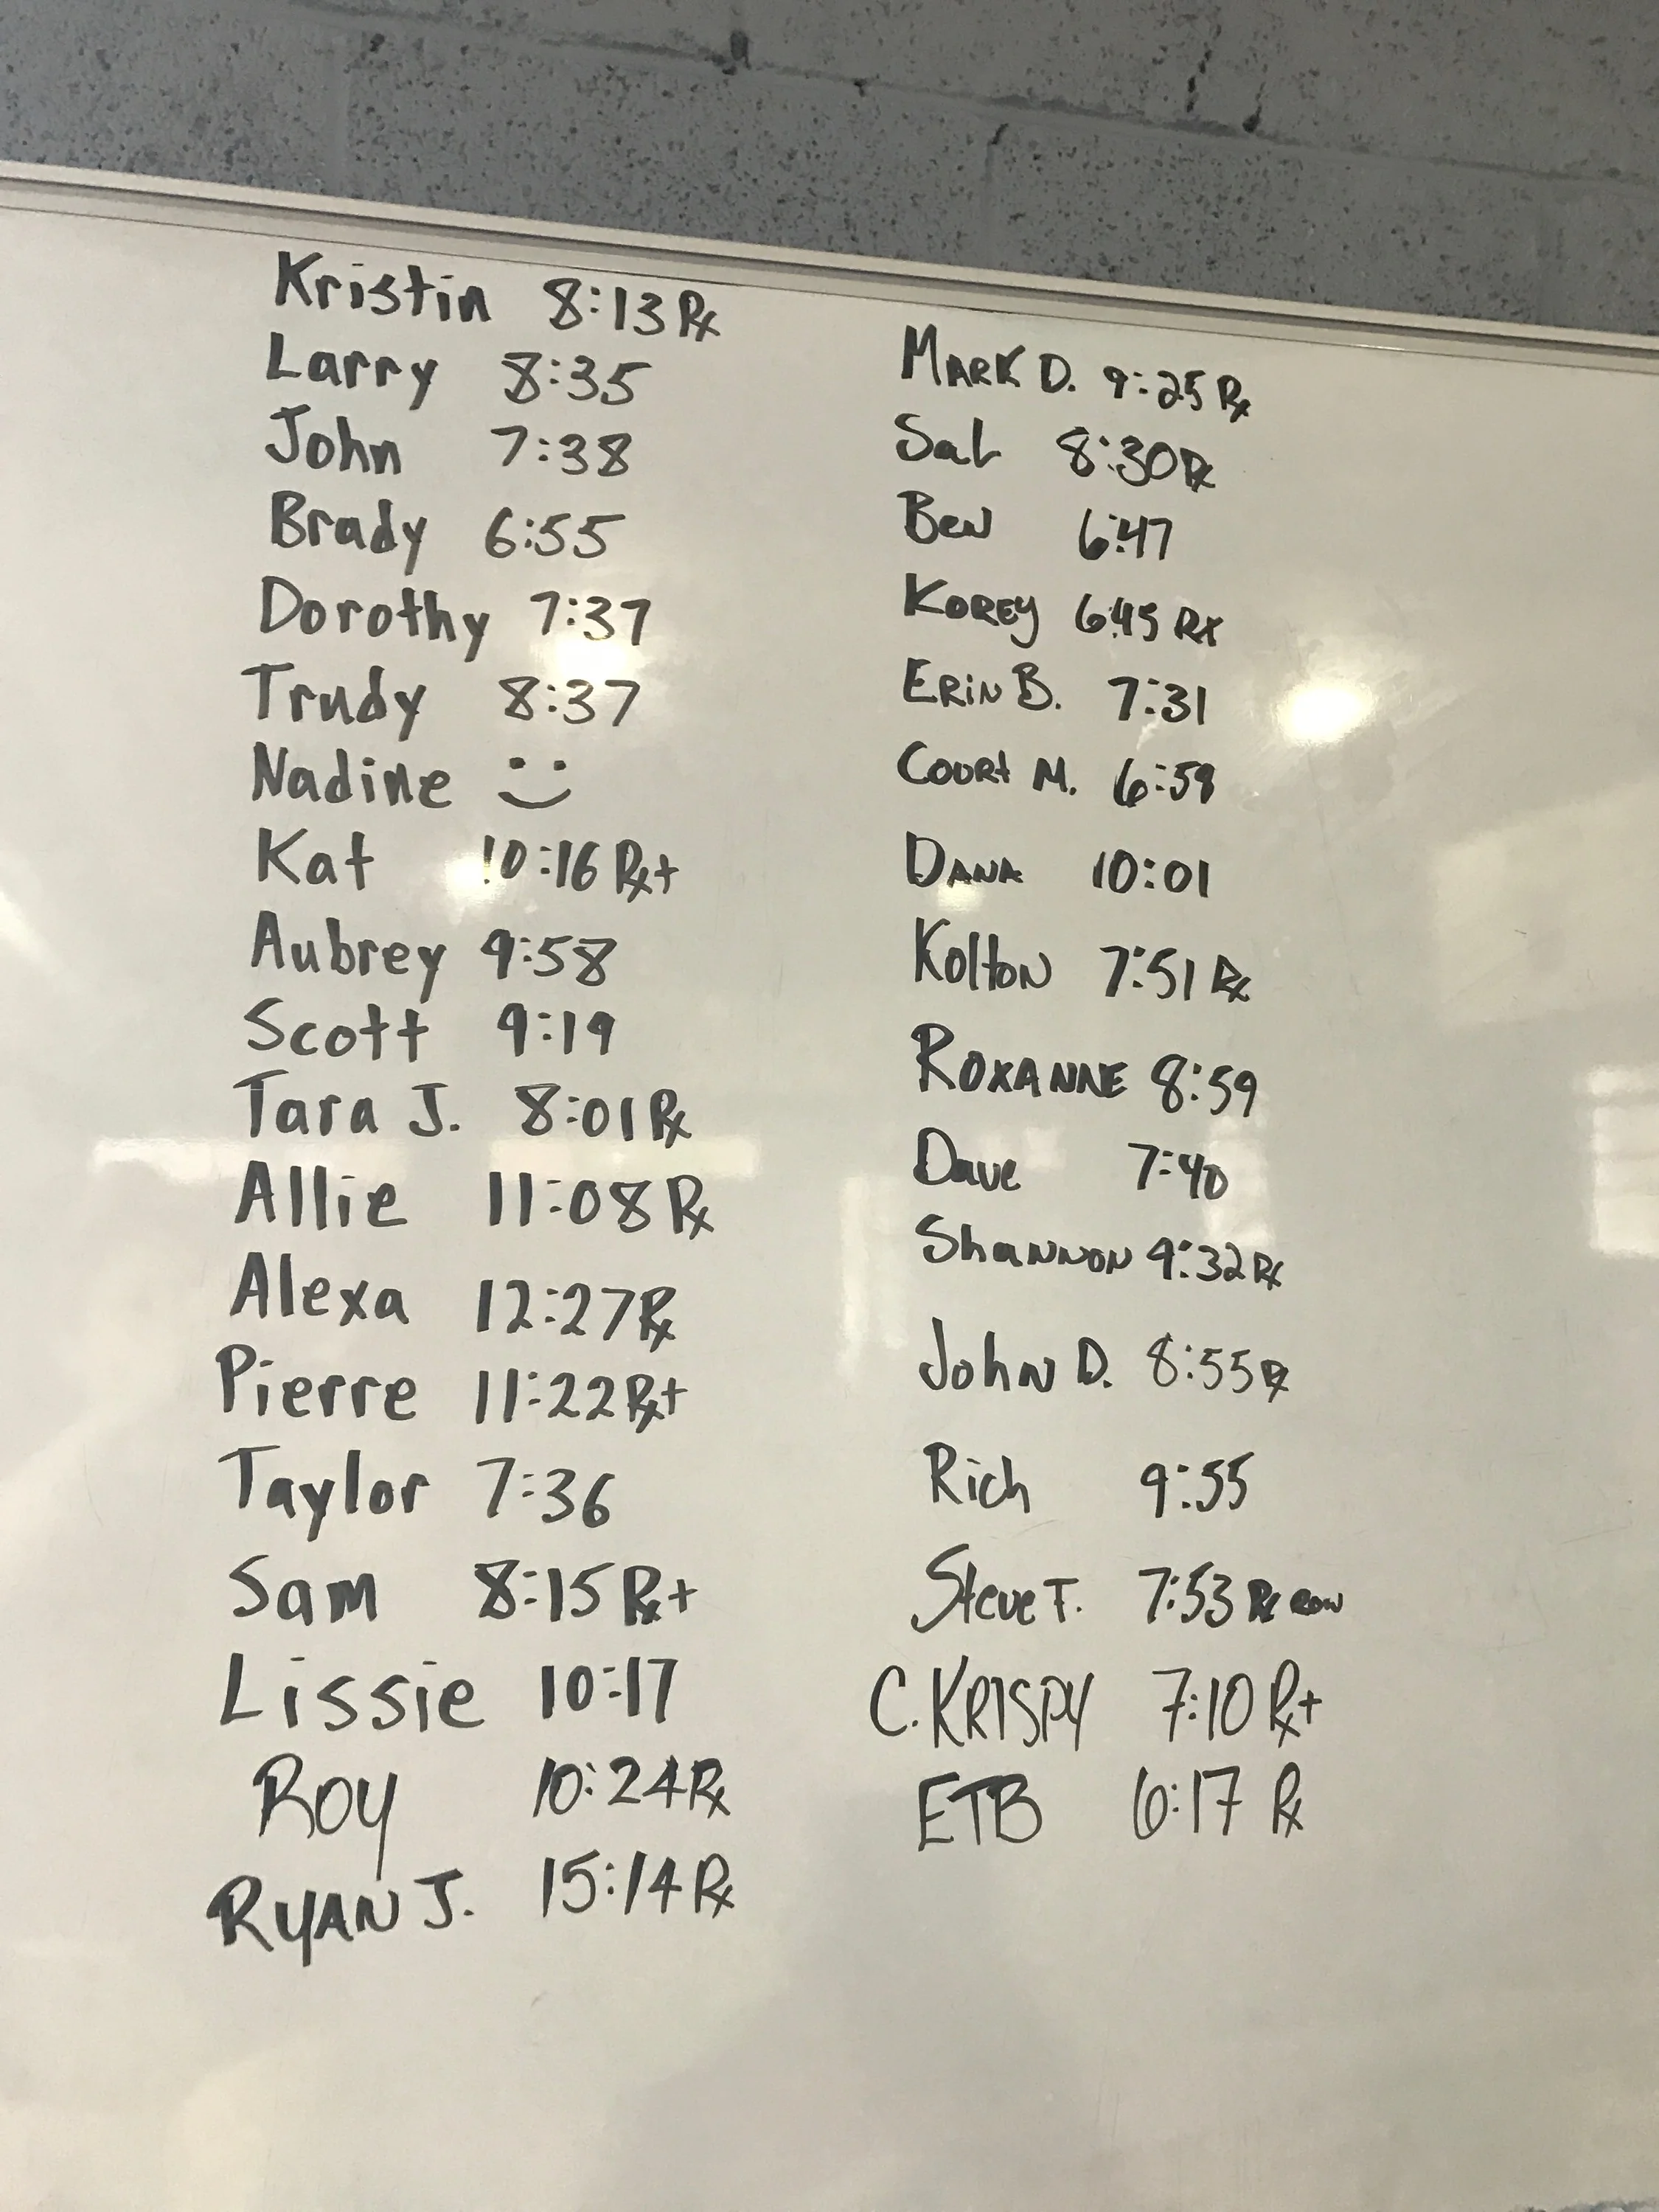 Kristin 8:13 Rx
Larry 8:35
John 7:38
Brady 6:55
Dorothy 7:37
Trudy 8:37
Nadine :)
Kat 10:16 Rx+
Aubrey 9:58
Scott 9:19
Tara J. 8:01 Rx
Allie 11:08 Rx
Alexa 12:27 Rx
Pierre 11:22 Rx+
Taylor 7:36
Sam 8:15 Rx+
Lissie 10:17
Roy 10:24 Rx
RYAN J. 15:14 Rx
MARK D. 9:25 Rx
Sal 8:30 Rx
Ben 6:47
KOREY 6:45 Rx
ERiN B. 7:31
COURt M. 6:59
DANA 10:01
KoltoN 7:51 Rx
ROXANNE 8:59
Dave 7:40
ShaNNoN 9:32 Rx
JohN D. 8:55 Rx
Rich 9:55
Steve T. 7:53 Rx ROW
C. KRISPY 7:10 Rx+
ETB 6:17 Rx